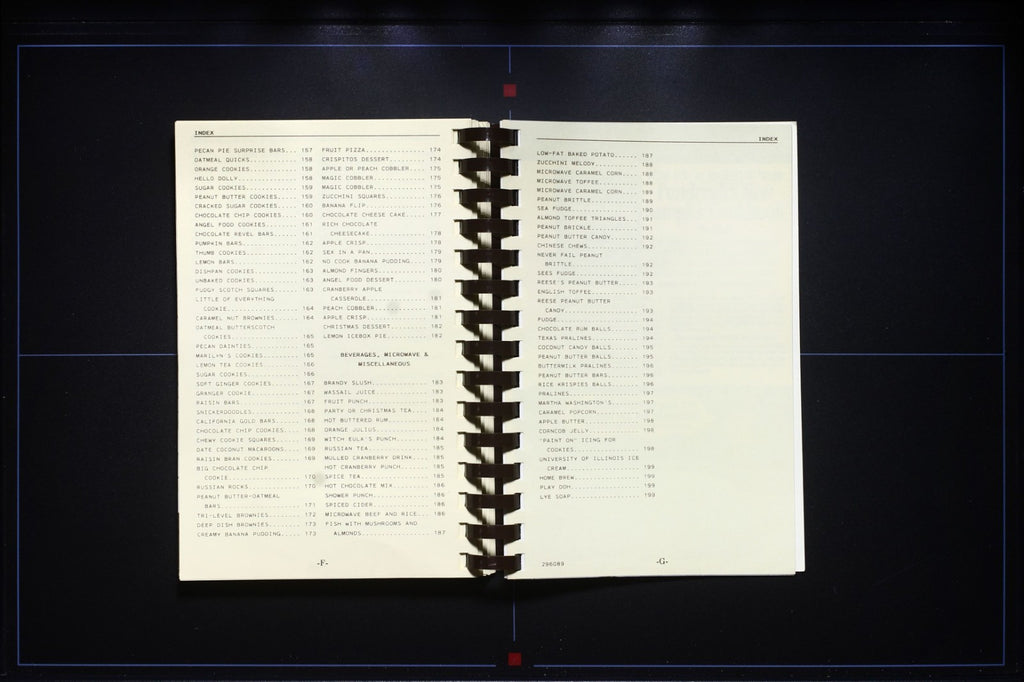 INDEX
PECAN PIE SURPRISE BARS... 157
OATMEAL QUICKS........... 158
ORANGE COOKIES........... 158
HELLO DOLLY.............. 158
SUGAR COOKIES............ 159
PEANUT BUTTER COOKIES.... 159
CRACKED SUGAR COOKIES.... 160
CHOCOLATE CHIP COOKIES... 160
ANGEL FOOD COOKIES....... 161
CHOCOLATE REVEL BARS..... 161
PUMPKIN BARS............. 162
THUMB COOKIES............ 162
LEMON BARS............... 162
DISHPAN COOKIES.......... 163
UNBAKED COOKIES.......... 163
FUDGY SCOTCH SQUARES..... 163
LITTLE OF EVERYTHING
COOKIE................. 164
CARAMEL NUT BROWNIES..... 164
OATMEAL BUTTERSCOTCH
COOKIES................ 165
PECAN DAINTIES........... 165
MARILYN'S COOKIES........ 165
LEMON TEA COOKIES........ 166
SUGAR COOKIES............ 166
SOFT GINGER COOKIES...... 167
GRANGER COOKIE........... 167
RAISIN BARS.............. 167
SNICKERDOODLES........... 168
CALIFORNIA GOLD BARS..... 168
CHOCOLATE CHIP COOKIES... 168
CHEWY COOKIE SQUARES..... 169
DATE COCONUT MACAROONS... 169
RAISIN BRAN COOKIES...... 169
BIG CHOCOLATE CHIP
COOKIE................. 170
RUSSIAN ROCKS............ 170
PEANUT BUTTER-OATMEAL
BARS................... 171
TRI-LEVEL BROWNIES....... 172
DEEP DISH BROWNIES....... 173
CREAMY BANANA PUDDING.... 173
FRUIT PIZZA.............. 174
CRISPITOS DESSERT........ 174
APPLE OR PEACH COBBLER... 175
MAGIC COBBLER............ 175
MAGIC COBBLER............ 175
ZUCCHINI SQUARES......... 176
BANANA FLIP.............. 176
CHOCOLATE CHEESE CAKE.... 177
RICH CHOCOLATE
CHEESECAKE............. 178
APPLE CRISP.............. 178
SEX IN A PAN............. 179
NO COOK BANANA PUDDING... 179
ALMOND FINGERS........... 180
ANGEL FOOD DESSERT....... 180
CRANBERRY APPLE
CASSEROLE.............. 181
PEACH COBBLER............ 181
APPLE CRISP.............. 181
CHRISTMAS DESSERT........ 182
LEMON ICEBOX PIE......... 182
BEVERAGES, MICROWAVE &
MISCELLANEOUS
BRANDY SLUSH............. 183
WASSAIL JUICE............ 183
FRUIT PUNCH.............. 183
PARTY OR CHRISTMAS TEA... 184
HOT BUTTERED RUM......... 184
ORANGE JULIUS............ 184
WITCH EULA'S PUNCH....... 184
RUSSIAN TEA.............. 185
MULLED CRANBERRY DRINK... 185
HOT CRANBERRY PUNCH...... 185
SPICE TEA................ 185
HOT CHOCOLATE MIX........ 186
SHOWER PUNCH............. 186
SPICED CIDER............. 186
MICROWAVE BEEF AND RICE.. 186
FISH WITH MUSHROOMS AND
ALMONDS................ 187
-F-
INDEX
LOW-FAT BAKED POTATO..... 187
ZUCCHINI MELODY.......... 188
MICROWAVE CARAMEL CORN... 188
MICROWAVE TOFFEE......... 188
MICROWAVE CARAMEL CORN... 189
PEANUT BRITTLE........... 189
SEA FUDGE................ 190
ALMOND TOFFEE TRIANGLES.. 191
PEANUT BRICKLE........... 191
PEANUT BUTTER CANDY...... 192
CHINESE CHEWS............ 192
NEVER FAIL PEANUT
BRITTLE................ 192
SEES FUDGE............... 192
REESE'S PEANUT BUTTER.... 193
ENGLISH TOFFEE........... 193
REESE PEANUT BUTTER
CANDY.................. 193
FUDGE.................... 194
CHOCOLATE RUM BALLS...... 194
TEXAS PRALINES........... 194
COCONUT CANDY BALLS...... 195
PEANUT BUTTER BALLS...... 195
BUTTERMILK PRALINES...... 196
PEANUT BUTTER BARS....... 196
RICE KRISPIES BALLS...... 196
PRALINES................. 197
MARTHA WASHINGTON'S...... 197
CARAMEL POPCORN.......... 197
APPLE BUTTER............. 198
CORNCOB JELLY............ 198
"PAINT ON" ICING FOR
COOKIES................ 198
UNIVERSITY OF ILLINOIS ICE
CREAM.................. 199
HOME BREW................ 199
PLAY DOH................. 199
LYE SOAP................. 199
296089
-G-